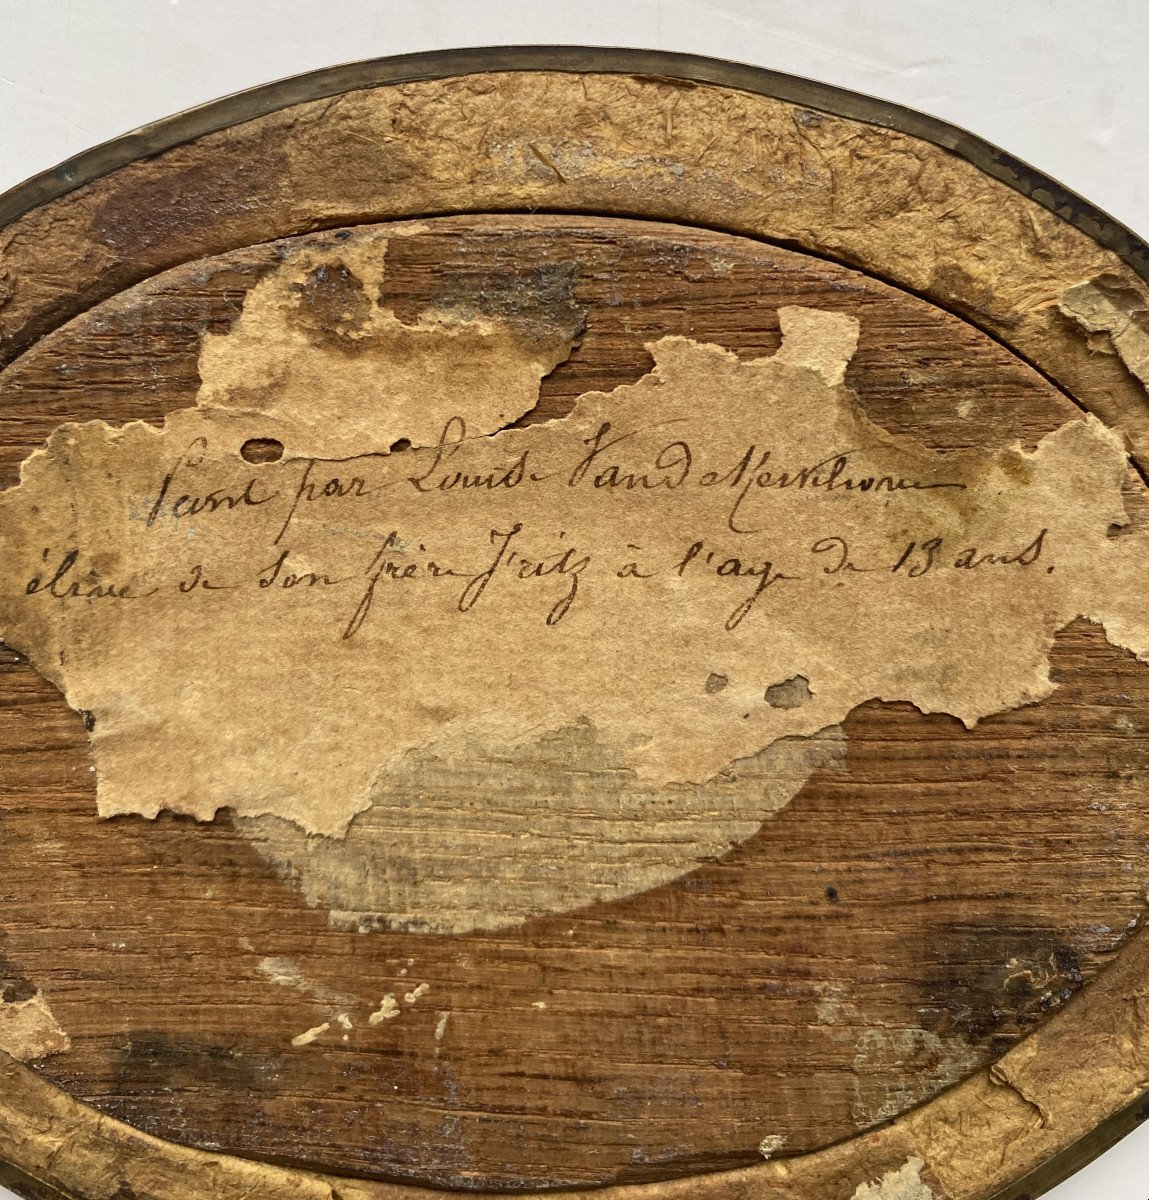 Peint par Louise Van de Kerkhove
élève de son frère Fritz à l'age de 13 ans.